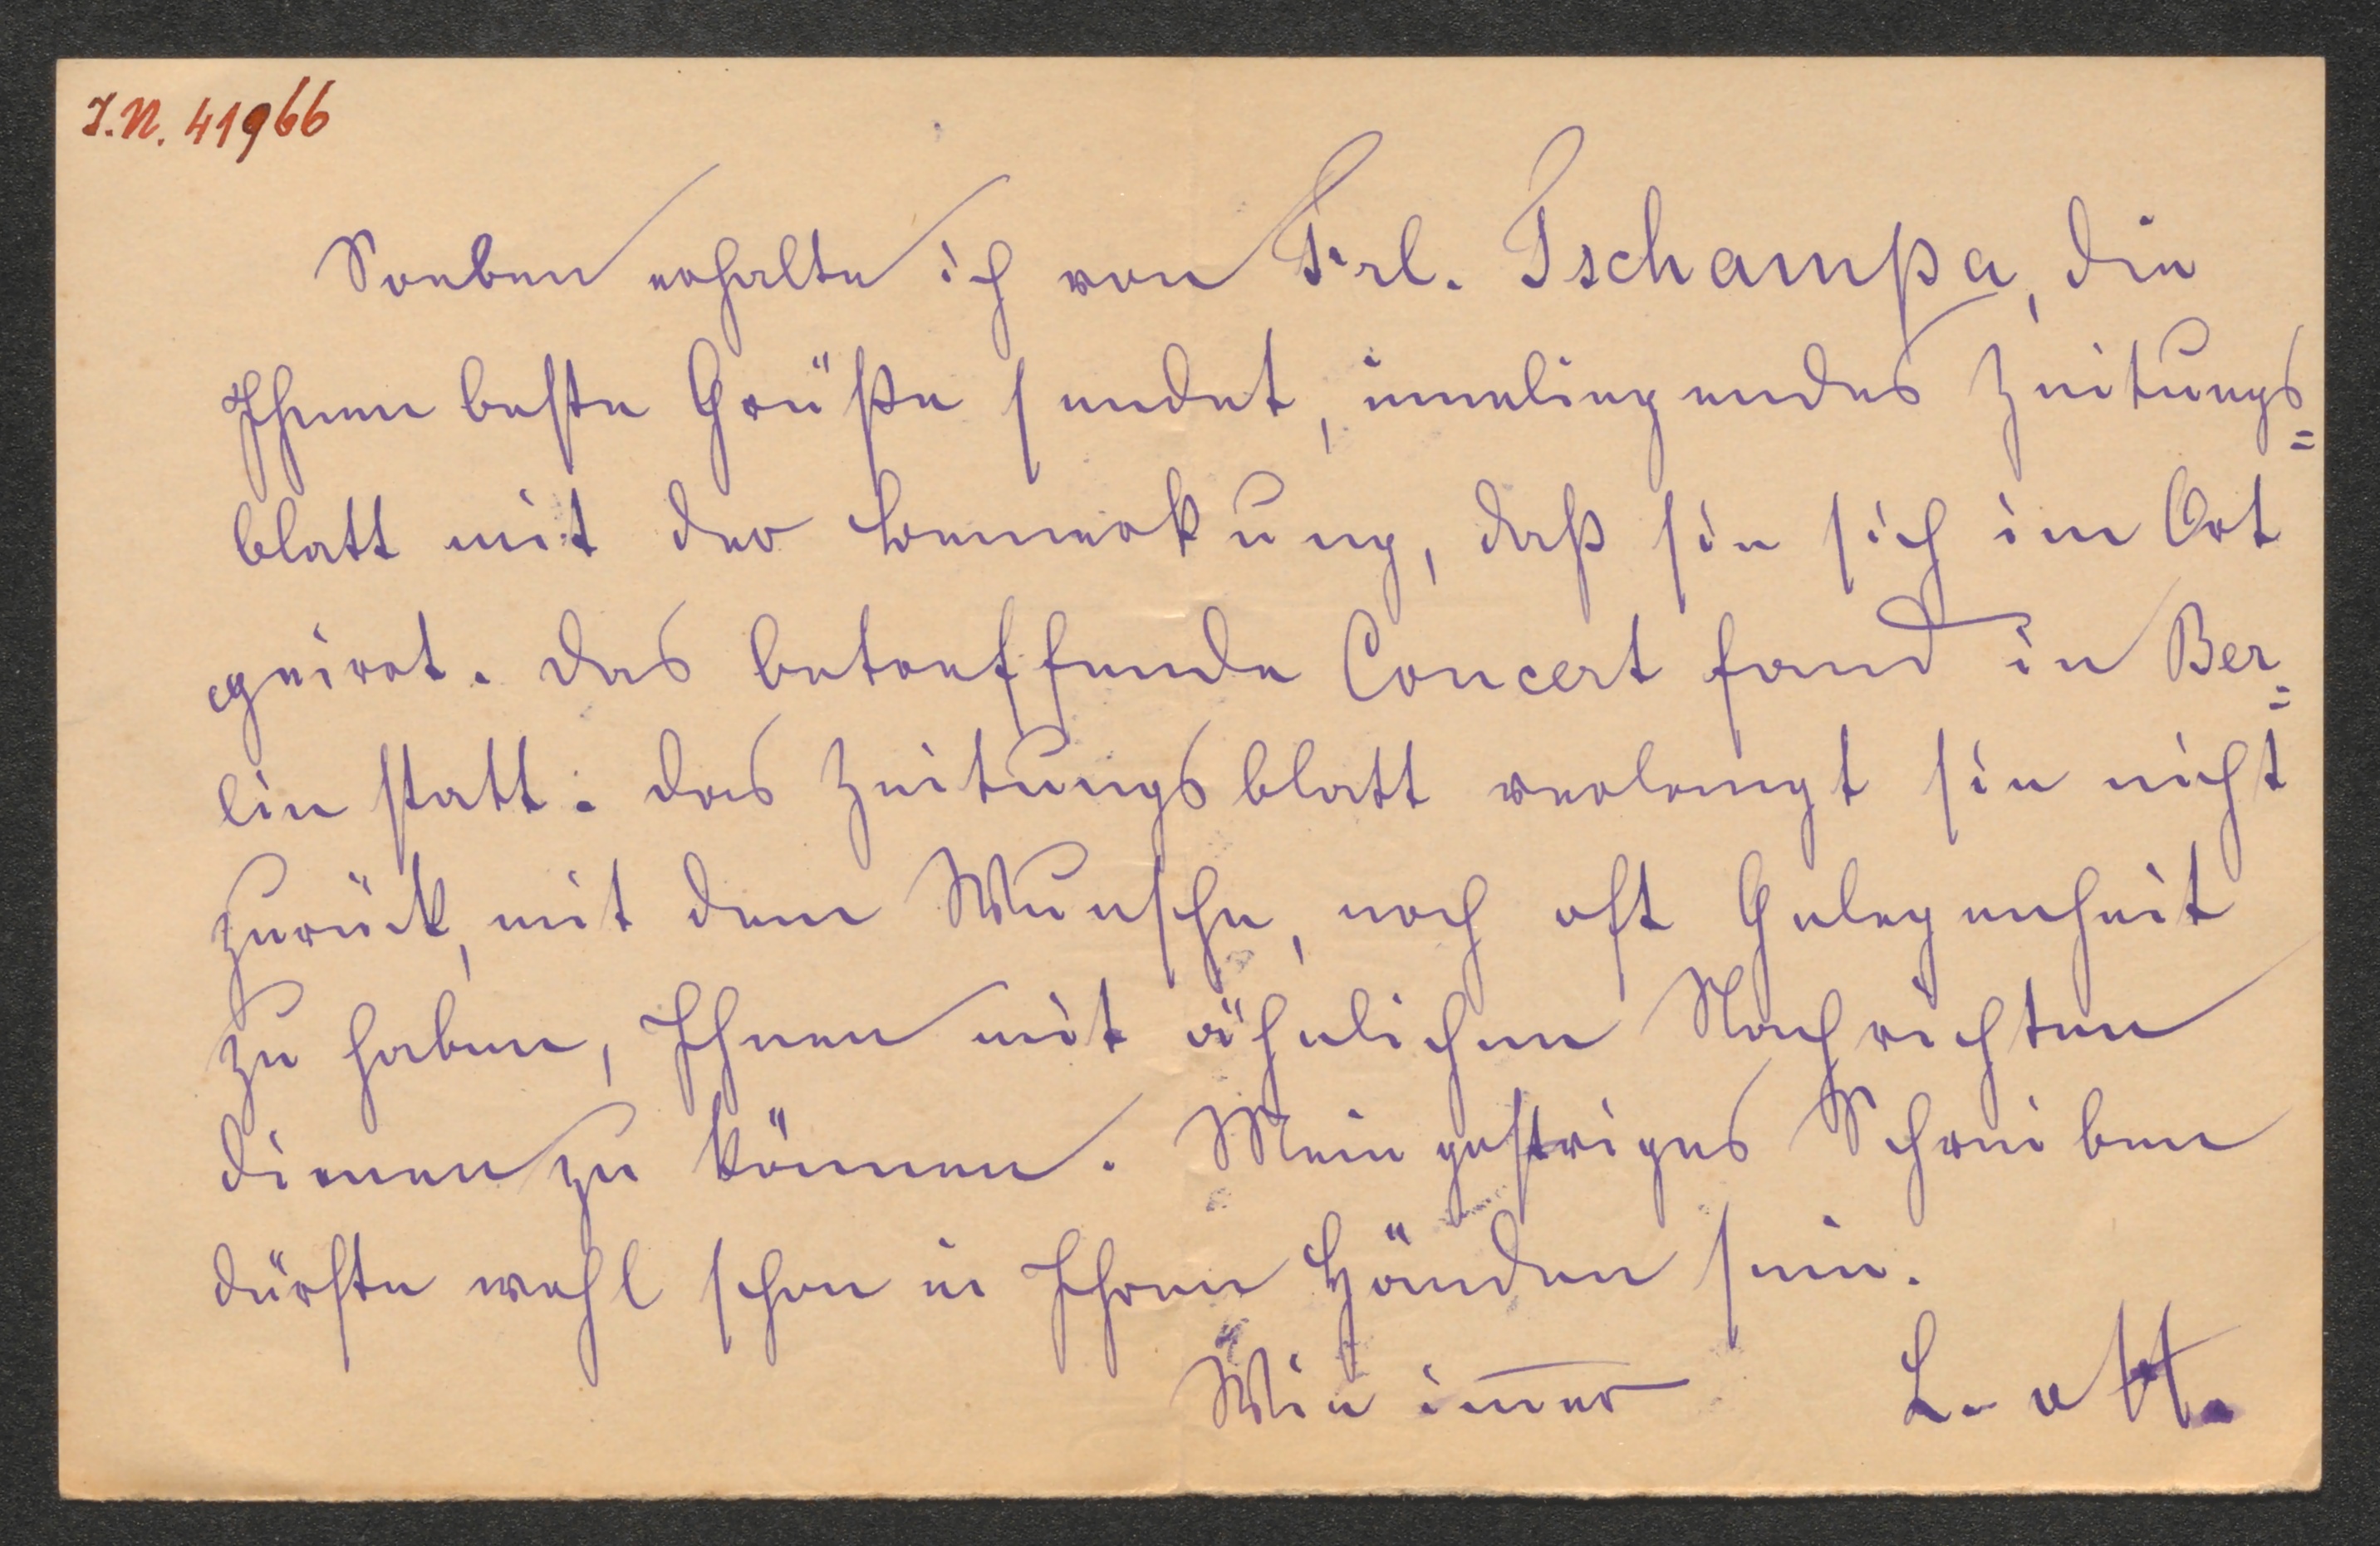 I.N. 41966
Soeben erhalte ich von Frl. Tschampa, die
Ihnen beste Grüße sendet, inneliegendes Zeitungs=
blatt mit der Bemerkung, daß sie sich im Ort
geirrt. Das betreffende Concert fand in Ber=
lin statt. Das Zeitungsblatt verlangt sie nicht
zurück, mit dem Wunsche, noch oft Gelegenheit
zu haben, Ihnen mit ähnlichen Nachrichten
dienen zu können. Mein gestriges Schreiben
dürfte wohl schon in Ihren Händen sein.
Wie im̅er L. v H.